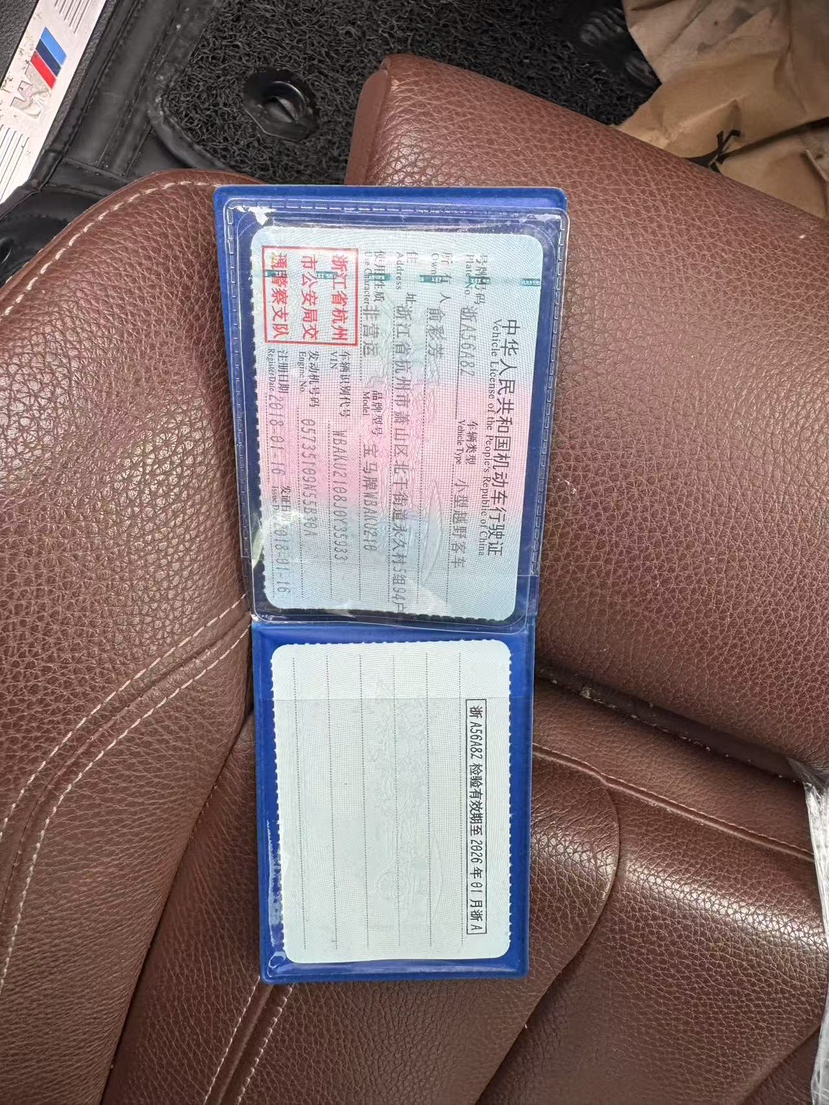 中华人民共和国机动车行驶证
Vehicle License of the People's Republic of China
号牌号码 浙A56A8Z 车辆类型 小型越野客车
Plate No. Vehicle Type
所有人 俞彩芳
Owner
住址 浙江省杭州市萧山区北干街道永久村5组94户
Address
使用性质 非营运 品牌型号 宝马牌WBAKU210
Use Character Model
浙江省杭州市公安局交通警察支队
车辆识别代号 WBAKU2108J0Y35933
VIN
发动机号码 05735109N55B30A
Engine No.
注册日期 2018-01-16 发证日期 2018-01-16
Register Date Issue Date
浙A56A8Z 检验有效期至2026年01月浙A